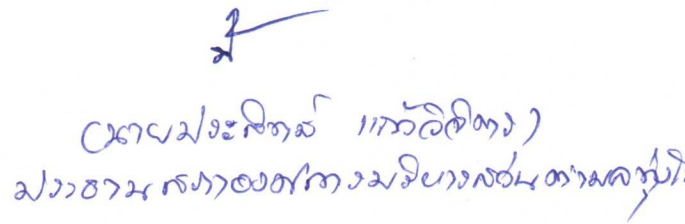 (นายประสิทธิ์ แก้ววิจิตร)
ประธานสภาองค์การบริหารส่วนตำบลทุ่ง